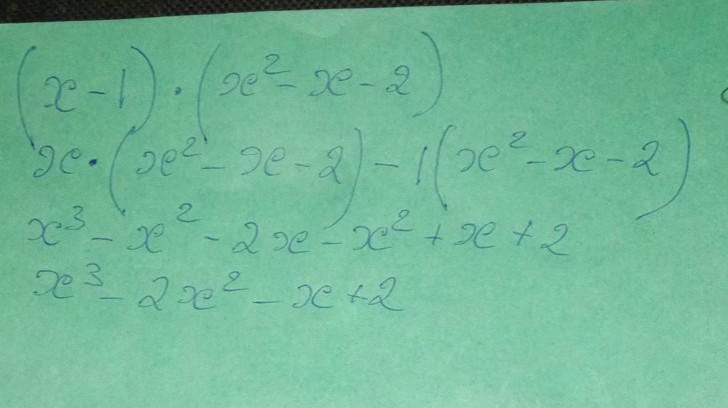 (x-1)·(x²-x-2)
x·(x²-x-2)-1(x²-x-2)
x³-x²-2x-x²+x+2
x³-2x²-x+2